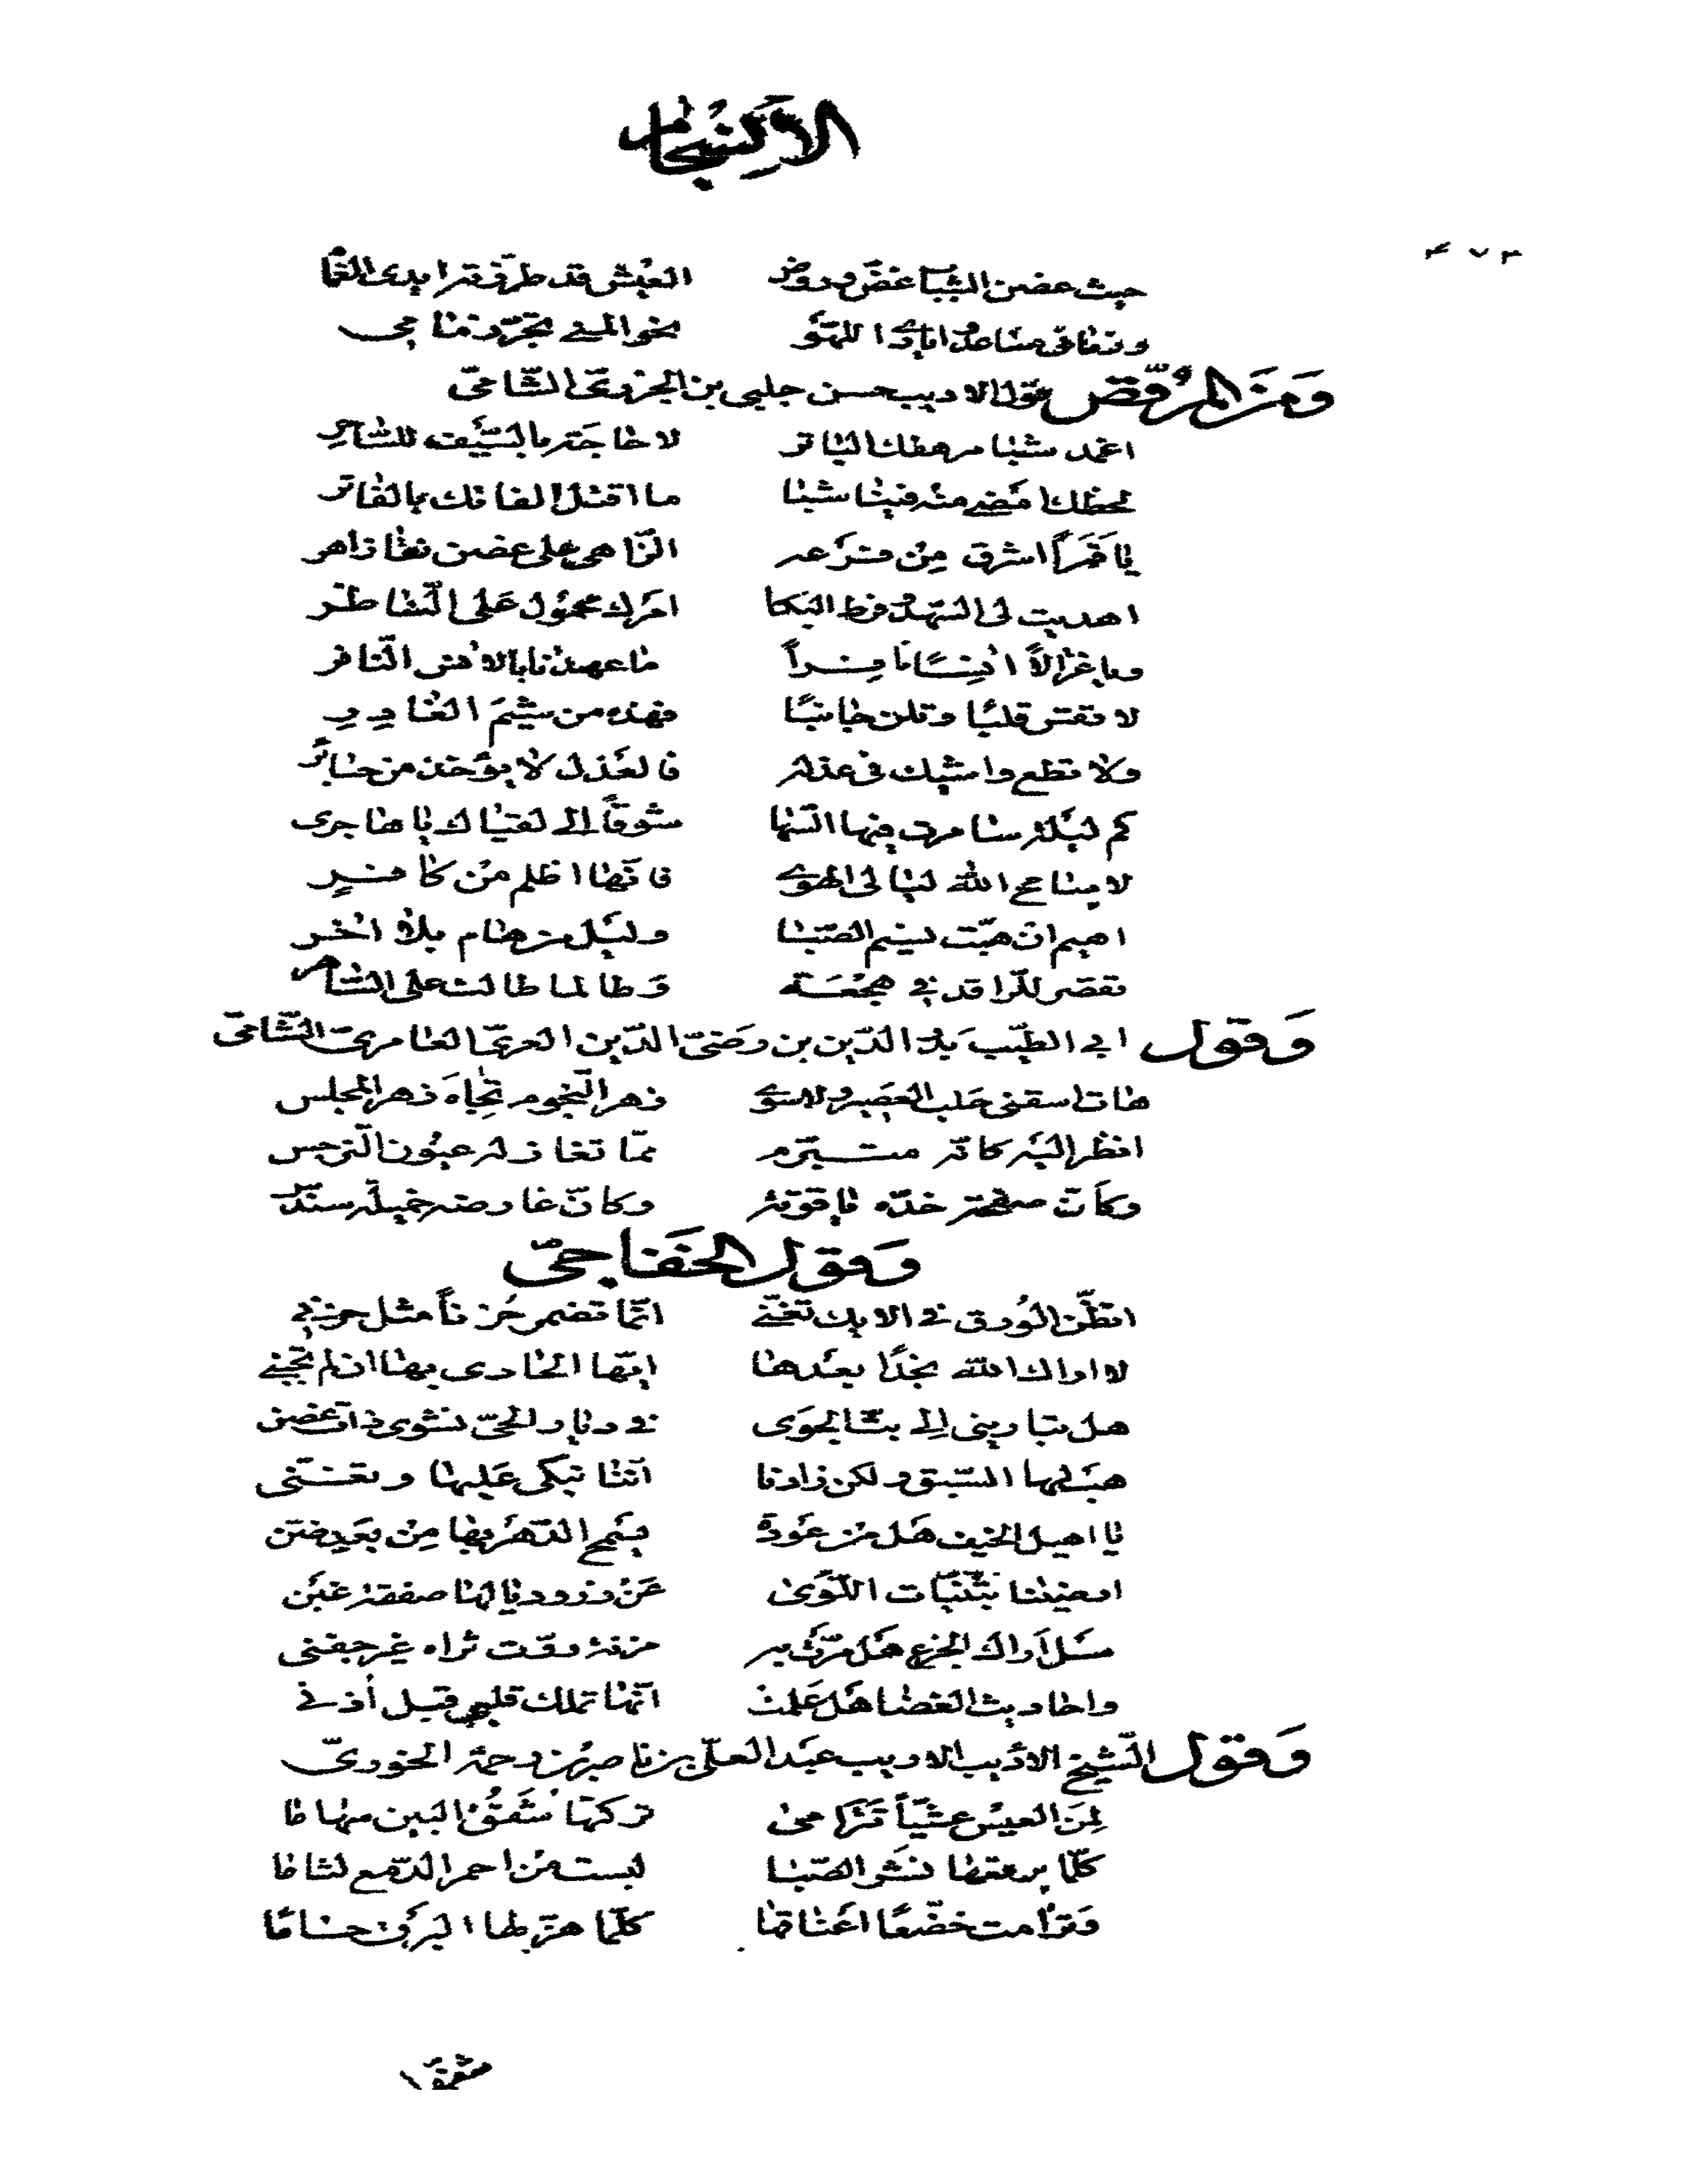 الانسجام
٤٧٣
حيث غصن الشباب غضّ وروض العيش قد طرّفته ايدى الغمام
نحو المنى بجرّ زمامى
ومن المرقص قول الاديب حسن جلبى بن الجزرىّ الشّامىّ
اغمد شبا مرهفك الباتر لا حاجة بالسّيف للسّاحر
لحظك امضى منه فينا شبا ما اقتل الفاتك بالفاتر
يا قمراً اشرق من فرعه الزّاهى على غصن نقا زاهر
اهديت لى السّهد وفرط البكا امرك محمول على النّاظر
ويا غزالاً انسًا نافراً ما عهدنا بالانس النّافر
لا تقس قلبًا وتلن جانبًا فهذه من شيم الغادر
ولا تطع واشيك فى عذله فالعدل لا يؤخذ من جائر
كم ليلة سامرت فيها السّها شوقاً الى لقياك يا هاجرى
الله ليالى الهوى فانّها اظلم من كافر
اهيم ان هبّت نسيم الصّبا وليل من هام بلا اخر
تقصر للرّاقد فى هجعة وطالما طالت على السّاهر
وقول ابى الطّيّب بدر الدّين بن رضىّ الدّين الغزىّ العامرىّ الشّامىّ
هات اسقنى حلب العصير ولا سوى زهر النّجوم تجاه زهر المجلس
انظر اليه كانّه متبرّم ممّا تغازله عيون النّرجس
وكأنّ صفحة خدّه ياقوتة وكانّ عارضه خميلة سندس
وقول الخفاجىّ
اتظنّ الورق فى الايك تغنّى انّما تضمر حزناً مثل حزنى
لا اراك الله نجدًا بعدها ايّها الحادى بها ان لم تجبنى
هل تبارينى الى بثّ الجوى فى ديار الحىّ نشوى ذات غصن
هب لها السّبق ولكن زادنا انّنا نبكى عليها وتغنّى
يا اهيل الخيف هل من عودة يسمح الدّهر بها من بعد ضنّ
ارضينا بثنيّات اللّوى عن زرود يا لها صفقة غبن
سل اراك الجزع هل مرّت به مزنة روّت ثراه غير جفنى
واحاديث الغضا هل علمت انّها تملك قلبى قبل أذنى
وقول الشّيخ الاديب الاريب عبد العلى بن ناصر بن رحمة الحويزىّ
لمن العيس عشيّاً تترامى تركتها شقق البين سهاما
كلّما برقعها نشر الصّبا لبست من احمر الدّمع لثاما
وترامت خضّعًا اعناقها كلّما هزّ لها البرق حساما